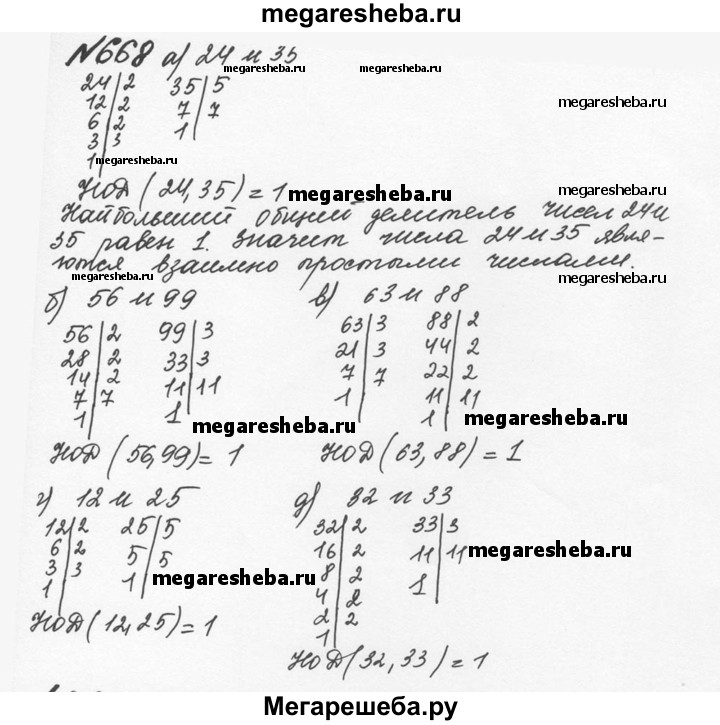 megaresheba.ru
№668 а) 24 и 35
megaresheba.ru
24|2 35|5
12|2 7|7
megaresheba.ru
6|2 1|
3|3
1|
megaresheba.ru
НОД (24,35) = 1
megaresheba.ru
megaresheba.ru
Наибольший общий делитель чисел 24 и
35 равен 1. Значит числа 24 и 35 явля-
ются взаимно простыми числами.
megaresheba.ru
megaresheba.ru
б) 56 и 99
56|2 99|3
28|2 33|3
14|2 11|11
7|7 1|
1|
megaresheba.ru
НОД (56,99) = 1
в) 63 и 88
63|3 88|2
21|3 44|2
7|7 22|2
1| 11|11
1|
megaresheba.ru
НОД (63,88) = 1
г) 12 и 25
12|2 25|5
6|2 5|5
3|3 1|
1|
megaresheba.ru
НОД (12,25) = 1
д) 32 и 33
32|2 33|3
16|2 11|11
8|2 1|
4|2
2|2
1|
megaresheba.ru
НОД (32,33) = 1
Мегарешеба.ру